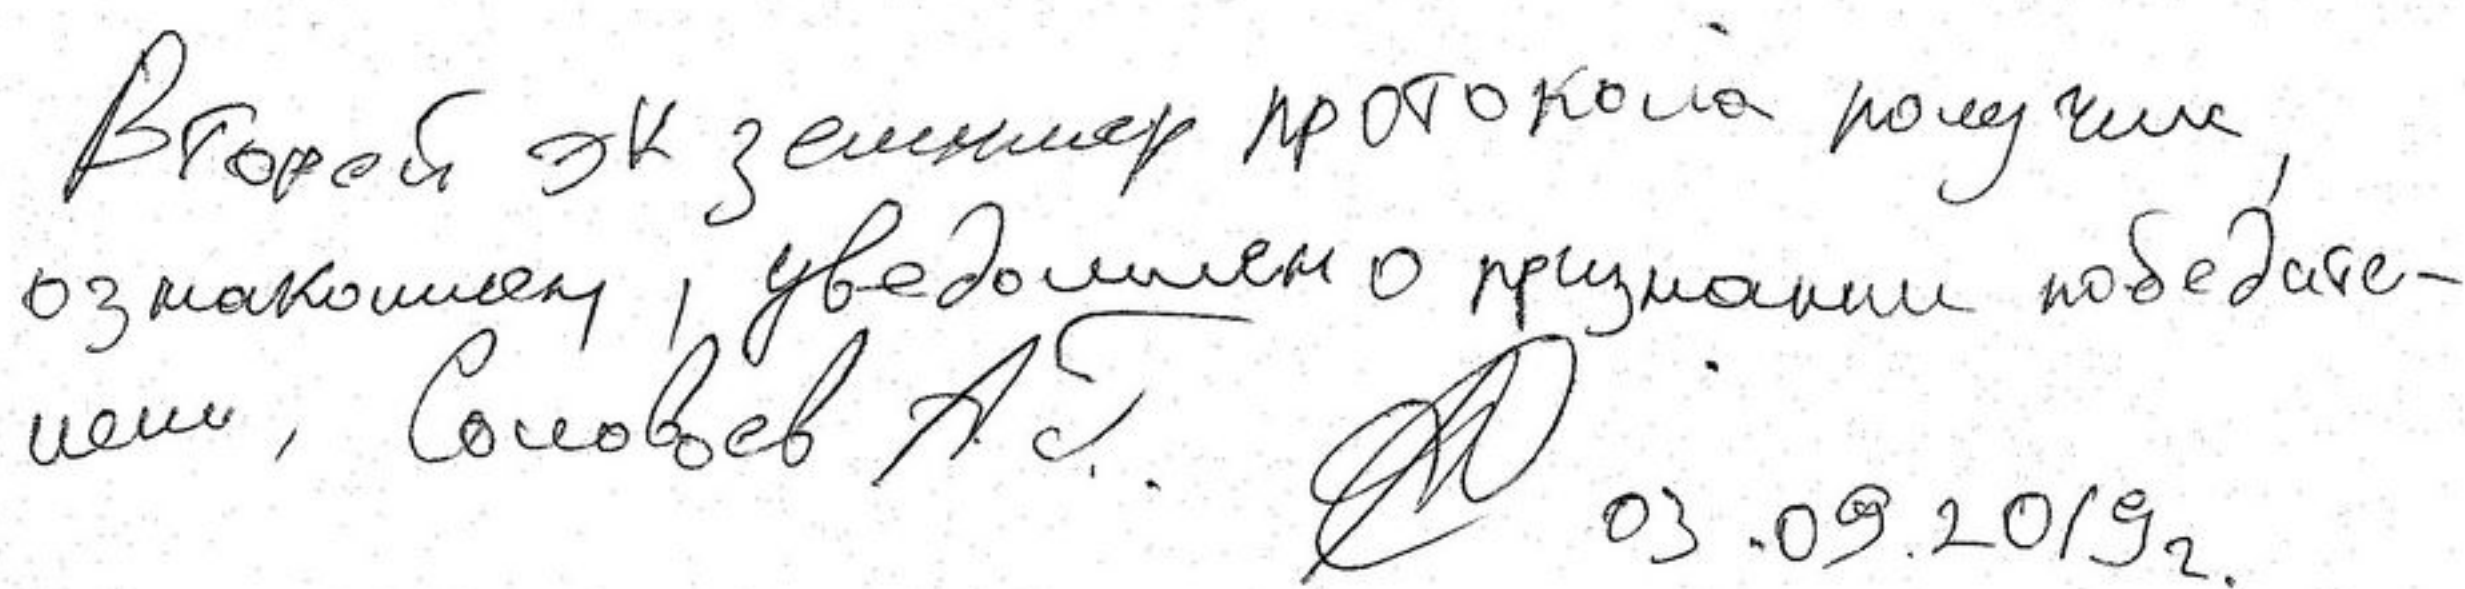 Второй экземпляр протокола получил,
ознакомлен, уведомлен о признании победите-
лем, Соловьев А.Г.
03.09.2019г.